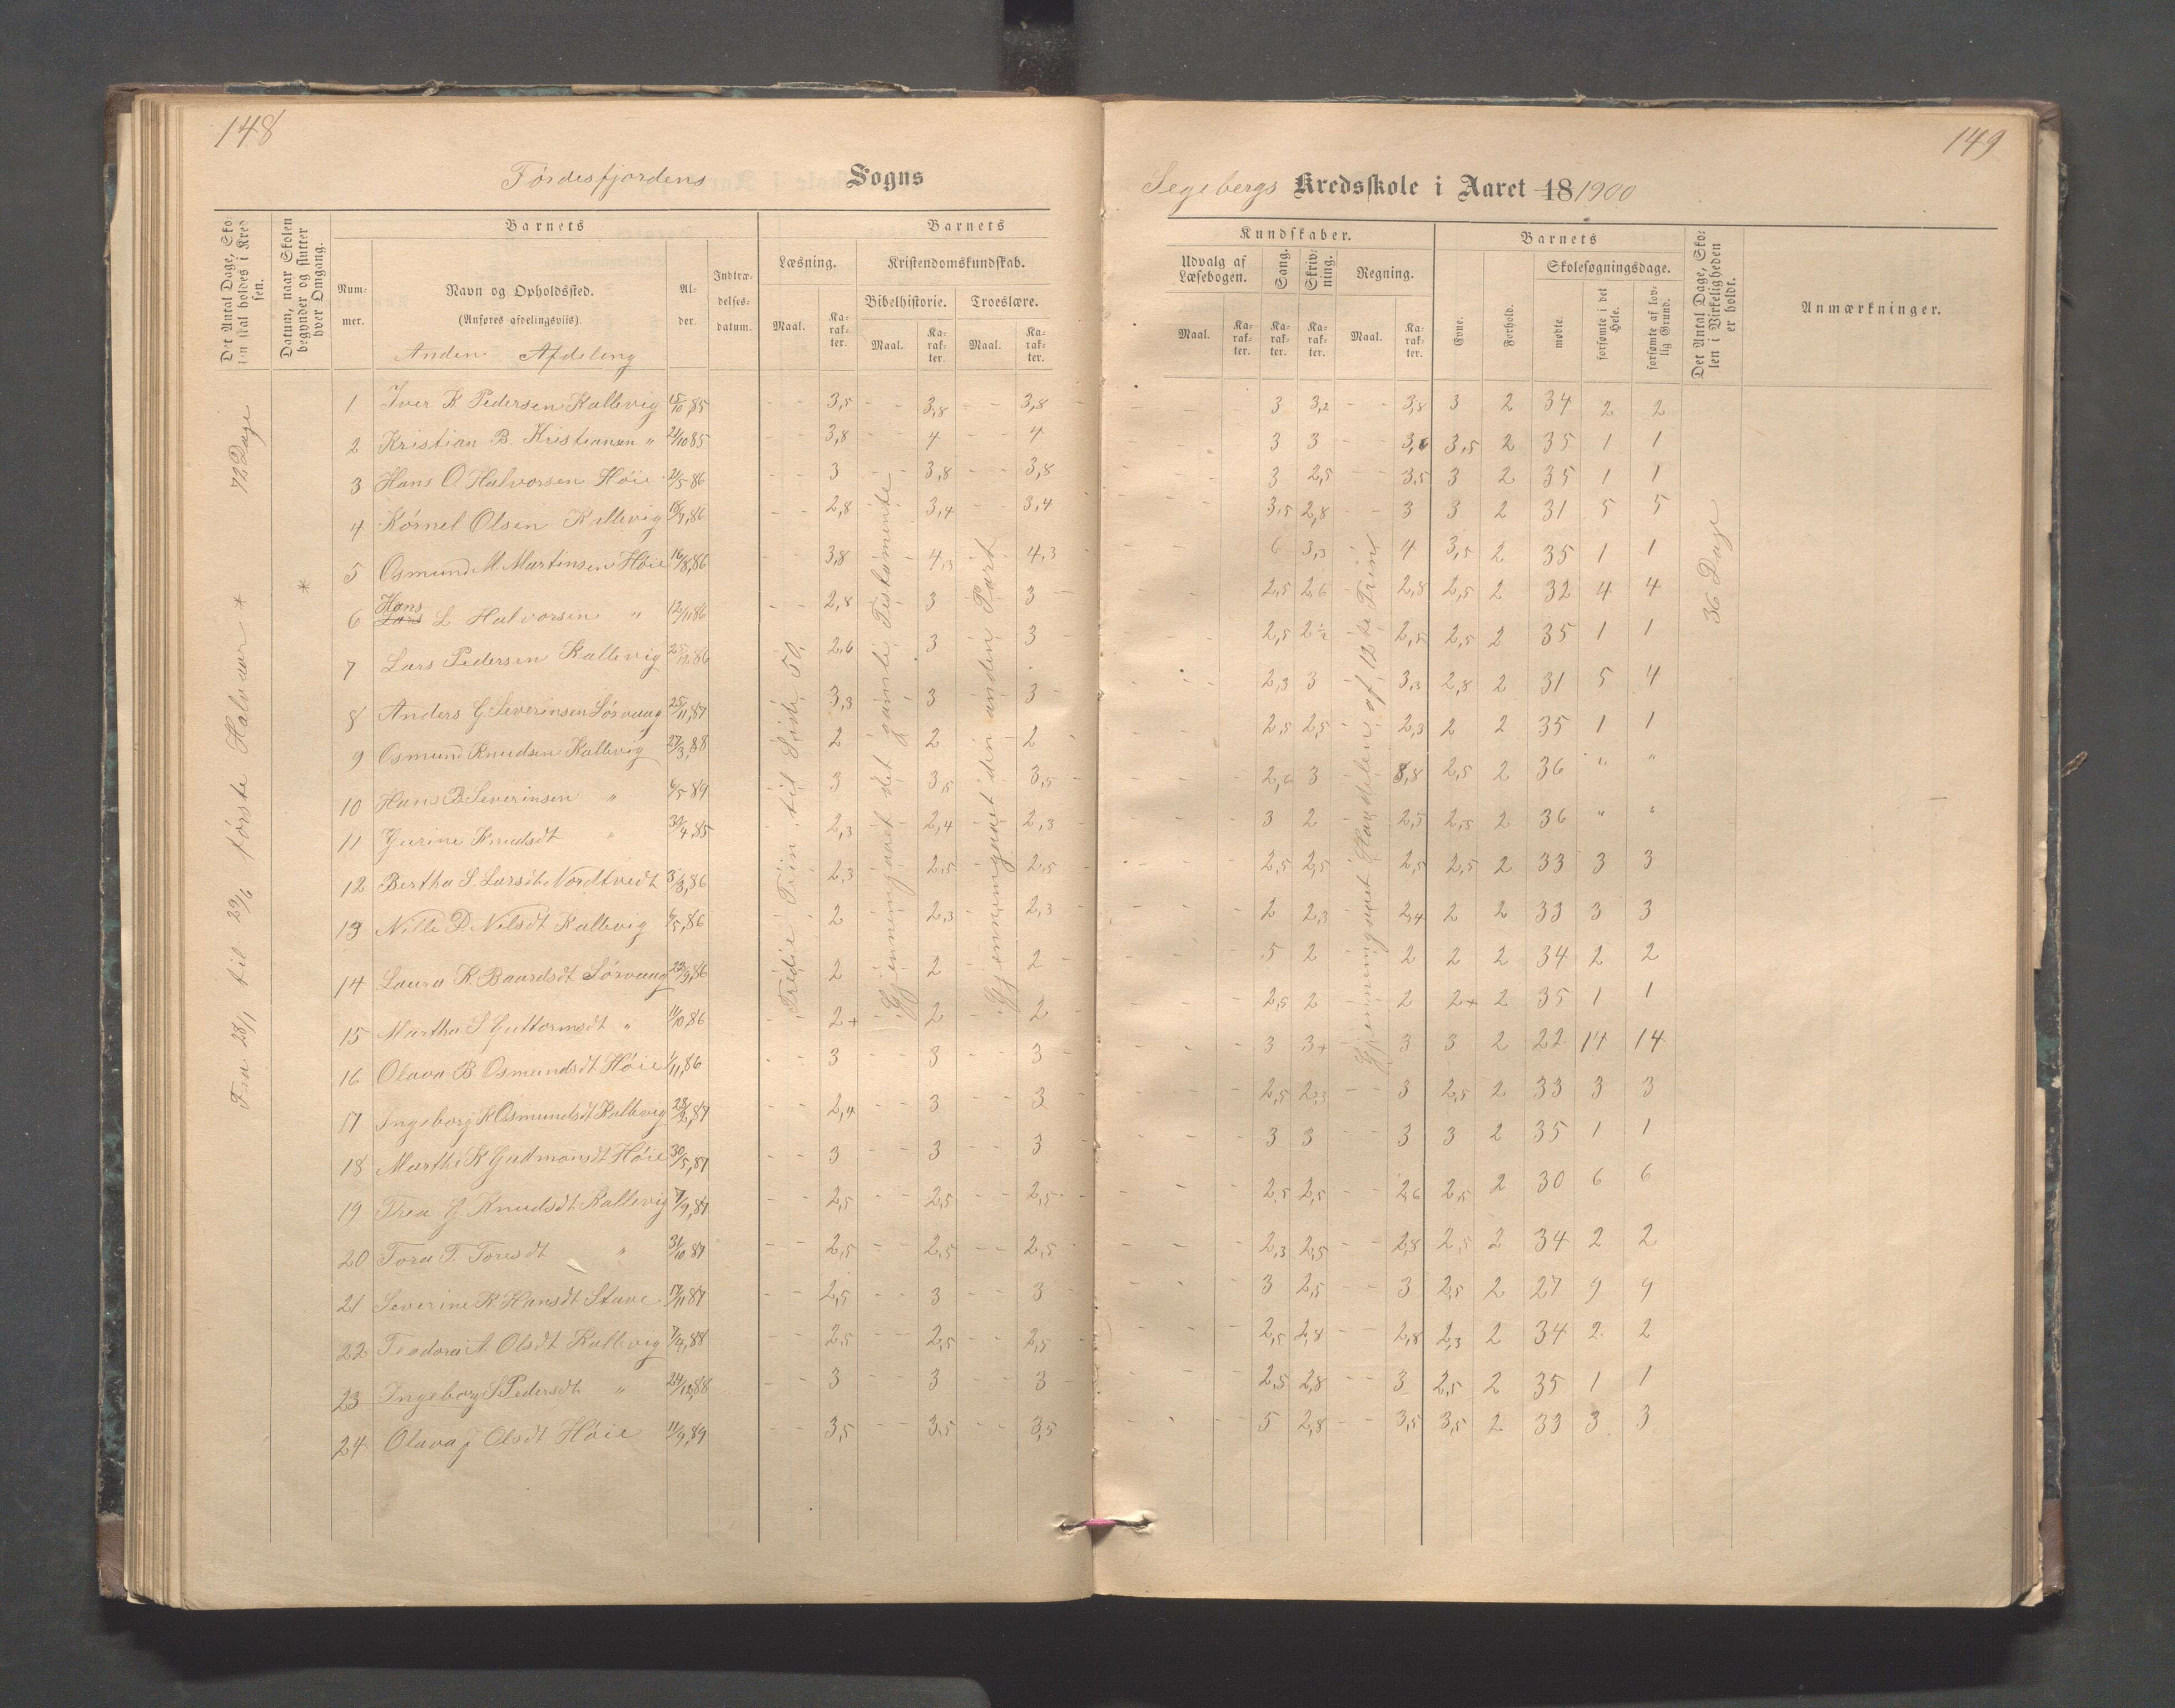 148
149
Førdesfjordens Sogns
Segebergs Kredsskole i Aaret 18 1900
Det Antal Dage, Sko-
len skal holdes i Kred-
sen.
Datum, naar Skolen
begynder og slutter
hver Omgang.
Barnets
Num-
mer.
Navn og Opholdssted.
(Anføres afdelingsviis).
Al-
der.
Indtræ-
delses-
datum.
Barnets
Læsning.
Kristendomskundskab.
Bibelhistorie.
Troeslære.
Maal.
Ka-
rak-
ter.
Maal.
Ka-
rak-
ter.
Maal.
Ka-
rak-
ter.
Kundskaber.
Udvalg af
Læsebogen.
Sang.
Skriv-
ning.
Regning.
Maal.
Ka-
rak-
ter.
Ka-
rak-
ter.
Ka-
rak-
ter.
Maal.
Ka-
rak-
ter.
Barnets
Evne.
Forhold.
Skolesøgningsdage.
mødte.
forsømte i det
Hele.
forsømte af lov-
lig Grund.
Det Antal Dage, Sko-
len i Virkeligheden
er holdt.
Anmærkninger.
Anden Afdeling
72 Dage
Fra 28/1 til 29/6 første Halvaar *
*
Tredie Trin til Side 50.
Gjennemgaaet det gamle Testamente
Gjennemgaaet den anden Part
Gjennemgaaet Handelen af 12te Trin
36 Dage
1 Iver K. Pedersen Kallevig 15/10,85 3,5 3,8 3,8 3 3,2 3,8 3 2 34 2 2
2 Kristian B. Kristiansen " 21/10 85 3,8 4 4 3 3 3,5 2 35 1 1
3 Hans O. Halvorsen Høie 21/5 86 3 3,8 3,8 3 2,5 3,5 3 2 35 1 1
4 Körnel Olsen Kallevig 2,8 3,4 3,4 3,5 2,8 3 3 2 31 5 5
5 Osmund M. Martinsen Høie 16/8,86 3,8 4,3 4,3 6 3,3 4 3,5 2 35 1 1
6 Hans Lars L Halvorsen " 12/11 86 2,8 3 3 2,5 2,6 2,8 2,5 2 32 4 4
7 Lars Pedersen Kallevig 25/12 86 2,6 3 3 2,5 2½ 2,5 2,5 2 35 1 1
8 Anders G Severinsen Sörvaag 25/11,87 3,3 3 3 2,3 3 3,3 2,8 2 31 5 4
9 Osmund Knudsen Kallevig 27/3,88 2 2 2 2,5 2,5 2,3 2 2 35 1 1
10 Hans B. Severinsen " 6/5 89 3 3,5 3,5 2,6 3 3,8 2,5 2 36 " "
11 Gurine Knudsdt " 2,3 2,4 2,3 3 2 2,5 2,5 2 36 " "
12 Bertha S. Larsdt Nordtvedt 3/3,86 2,3 2,5 2,5 2,5 2,5 2,5 2,5 2 33 3 3
13 Nille D. Nilsdt Kallevig 6/5,86 2 2,3 2,3 2 2,3 2,4 2 2 33 3 3
14 Laura K. Baardsdt Sörvaag 22/9,86 2 2 2 5 2 2 2 2 34 2 2
15 Martha S Guttormsdt " 11/10 86 2+ 2 2 2,5 2 2 2+ 2 35 1 1
16 Olava B Osmundsdt Høie 1/11,86 3 3 3 3 3+ 3 3 2 22 14 14
17 Ingeborg K Osmundsdt Kallevig 28/2,87 2,4 3 3 2,5 2,3 3 2,5 2 33 3 3
18 Marthe K Gudmandt Høie 30/5,87 3 3 3 3 3 3 3 2 35 1 1
19 Thea G. Knudsdt Kallevig 7/9,87 2,5 2,5 2,5 2,5 2,5 2,6 2,5 2 30 6 6
20 Tora T. Toresdt " 31/10 87 2,5 2,5 2,5 2,3 2,5 2,8 2,5 2 34 2 2
21 Severine R Hansdt Stave 17/11 87 2,5 3 3 3 2,5 3 2,5 2 27 9 9
22 Teodora A Olsdt Kallevig 7/4,88 2,5 2,5 2,5 2,5 2,8 2,8 2,3 2 34 2 2
23 Ingeborg S. Pedersdt " 24/12,88 3 3 3 2,5 2,8 3 2,5 2 35 1 1
24 Olava J Olsdt Høie 11/9,89 3,5 3,5 3,5 5 2,8 3,5 3,5 2 33 3 3